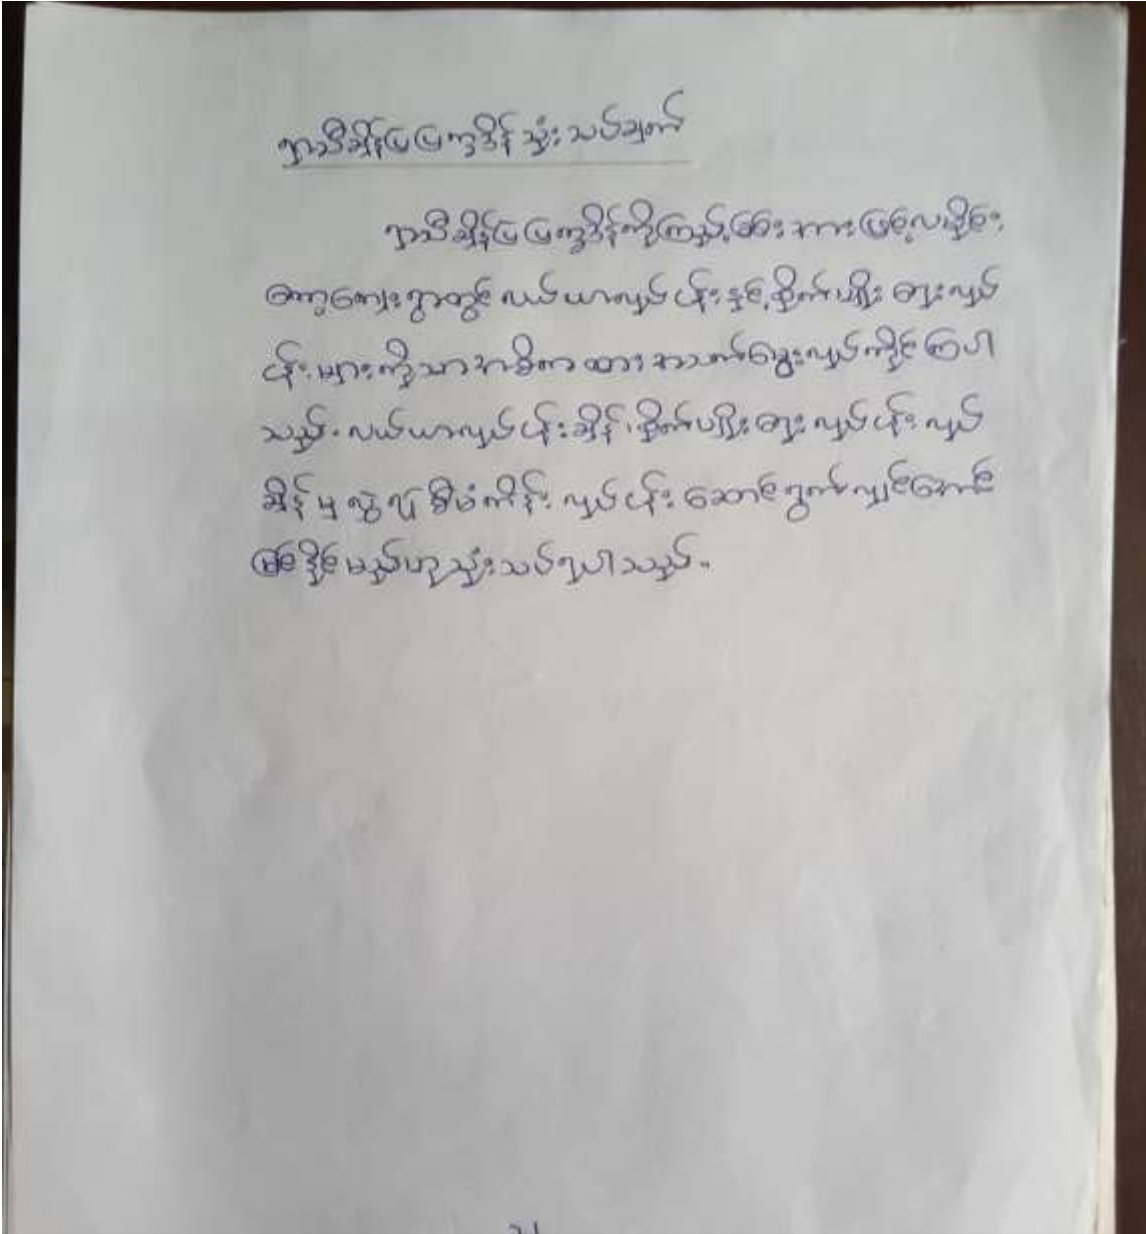 ရာသီချိန်ပြပြက္ခဒိန် သုံးသပ်ချက်
ရာသီချိန်ပြပြက္ခဒိန်ကိုကြည့်ခြင်းအားဖြင့်လမိုင်း
ကော့ကျေးရွာတွင် လယ်ယာလုပ်ငန်းနှင့်စိုက်ပျိုးရေးလုပ်
ငန်းများကိုသာအဓိကထားအသက်မွေးလုပ်ကိုင်ကြပါ
သည်။ လယ်ယာလုပ်ငန်းချိန်၊ စိုက်ပျိုးရေးလုပ်ငန်းလုပ်
ချိန်မှလွဲ၍ စီမံကိန်းလုပ်ငန်းဆောင်ရွက်လျှင်အောင်
မြင်နိုင်မည်ဟုသုံးသပ်ရပါသည်။